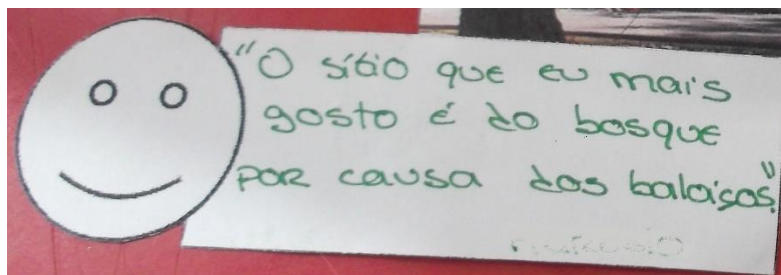 "O sítio que eu mais
gosto é do bosque
por causa dos baloiços."